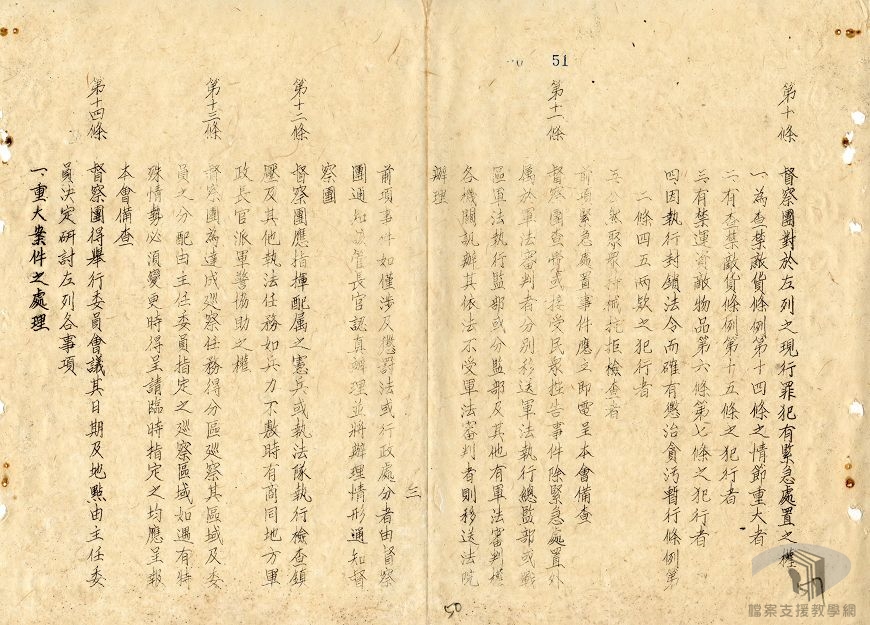 51
第十條 督察團對於左列之現行罪犯有緊急處置之權
一、為查禁敵貨條例第十四條之情節重大者
二、有查禁敵貨條例第十五條之犯行者
三、有禁運資敵物品第六條第七條之犯行者
四、因執行封鎖法令而確有懲治貪污暫行條例第
二條四五兩款之犯行者
五、公然聚眾持械抗拒檢查者
前項緊急處置事件應立即電呈本會備查
第十一條 督察團查覺或接受民眾控告事件除緊急處置外
屬於軍法審判者分別移送軍法執行總監部或戰
區軍法執行監部或分監部及其他有軍法審判權
各機關訊辦其依法不受軍法審判者則移送法院
辦理
三
前項事件如僅涉及懲罰法或行政處分者由督察
團通知該管長官認真辦理並將辦理情形通知督
察團
第十二條 督察團應指揮配屬之憲兵或執法隊執行檢查鎮
壓及其他執法任務如兵力不敷時有商同地方軍
政長官派軍警協助之權
第十三條 督察團為達成巡察任務得分區巡察其區域及委
員之分配由主任委員指定之巡察區域如遇有特
殊情勢必須變更時得呈請臨時指定之均應呈報
本會備查
第十四條 督察團得舉行委員會議其日期及地點由主任委
員決定研討左列各事項
一、重大案件之處理
50
檔案支援教學網